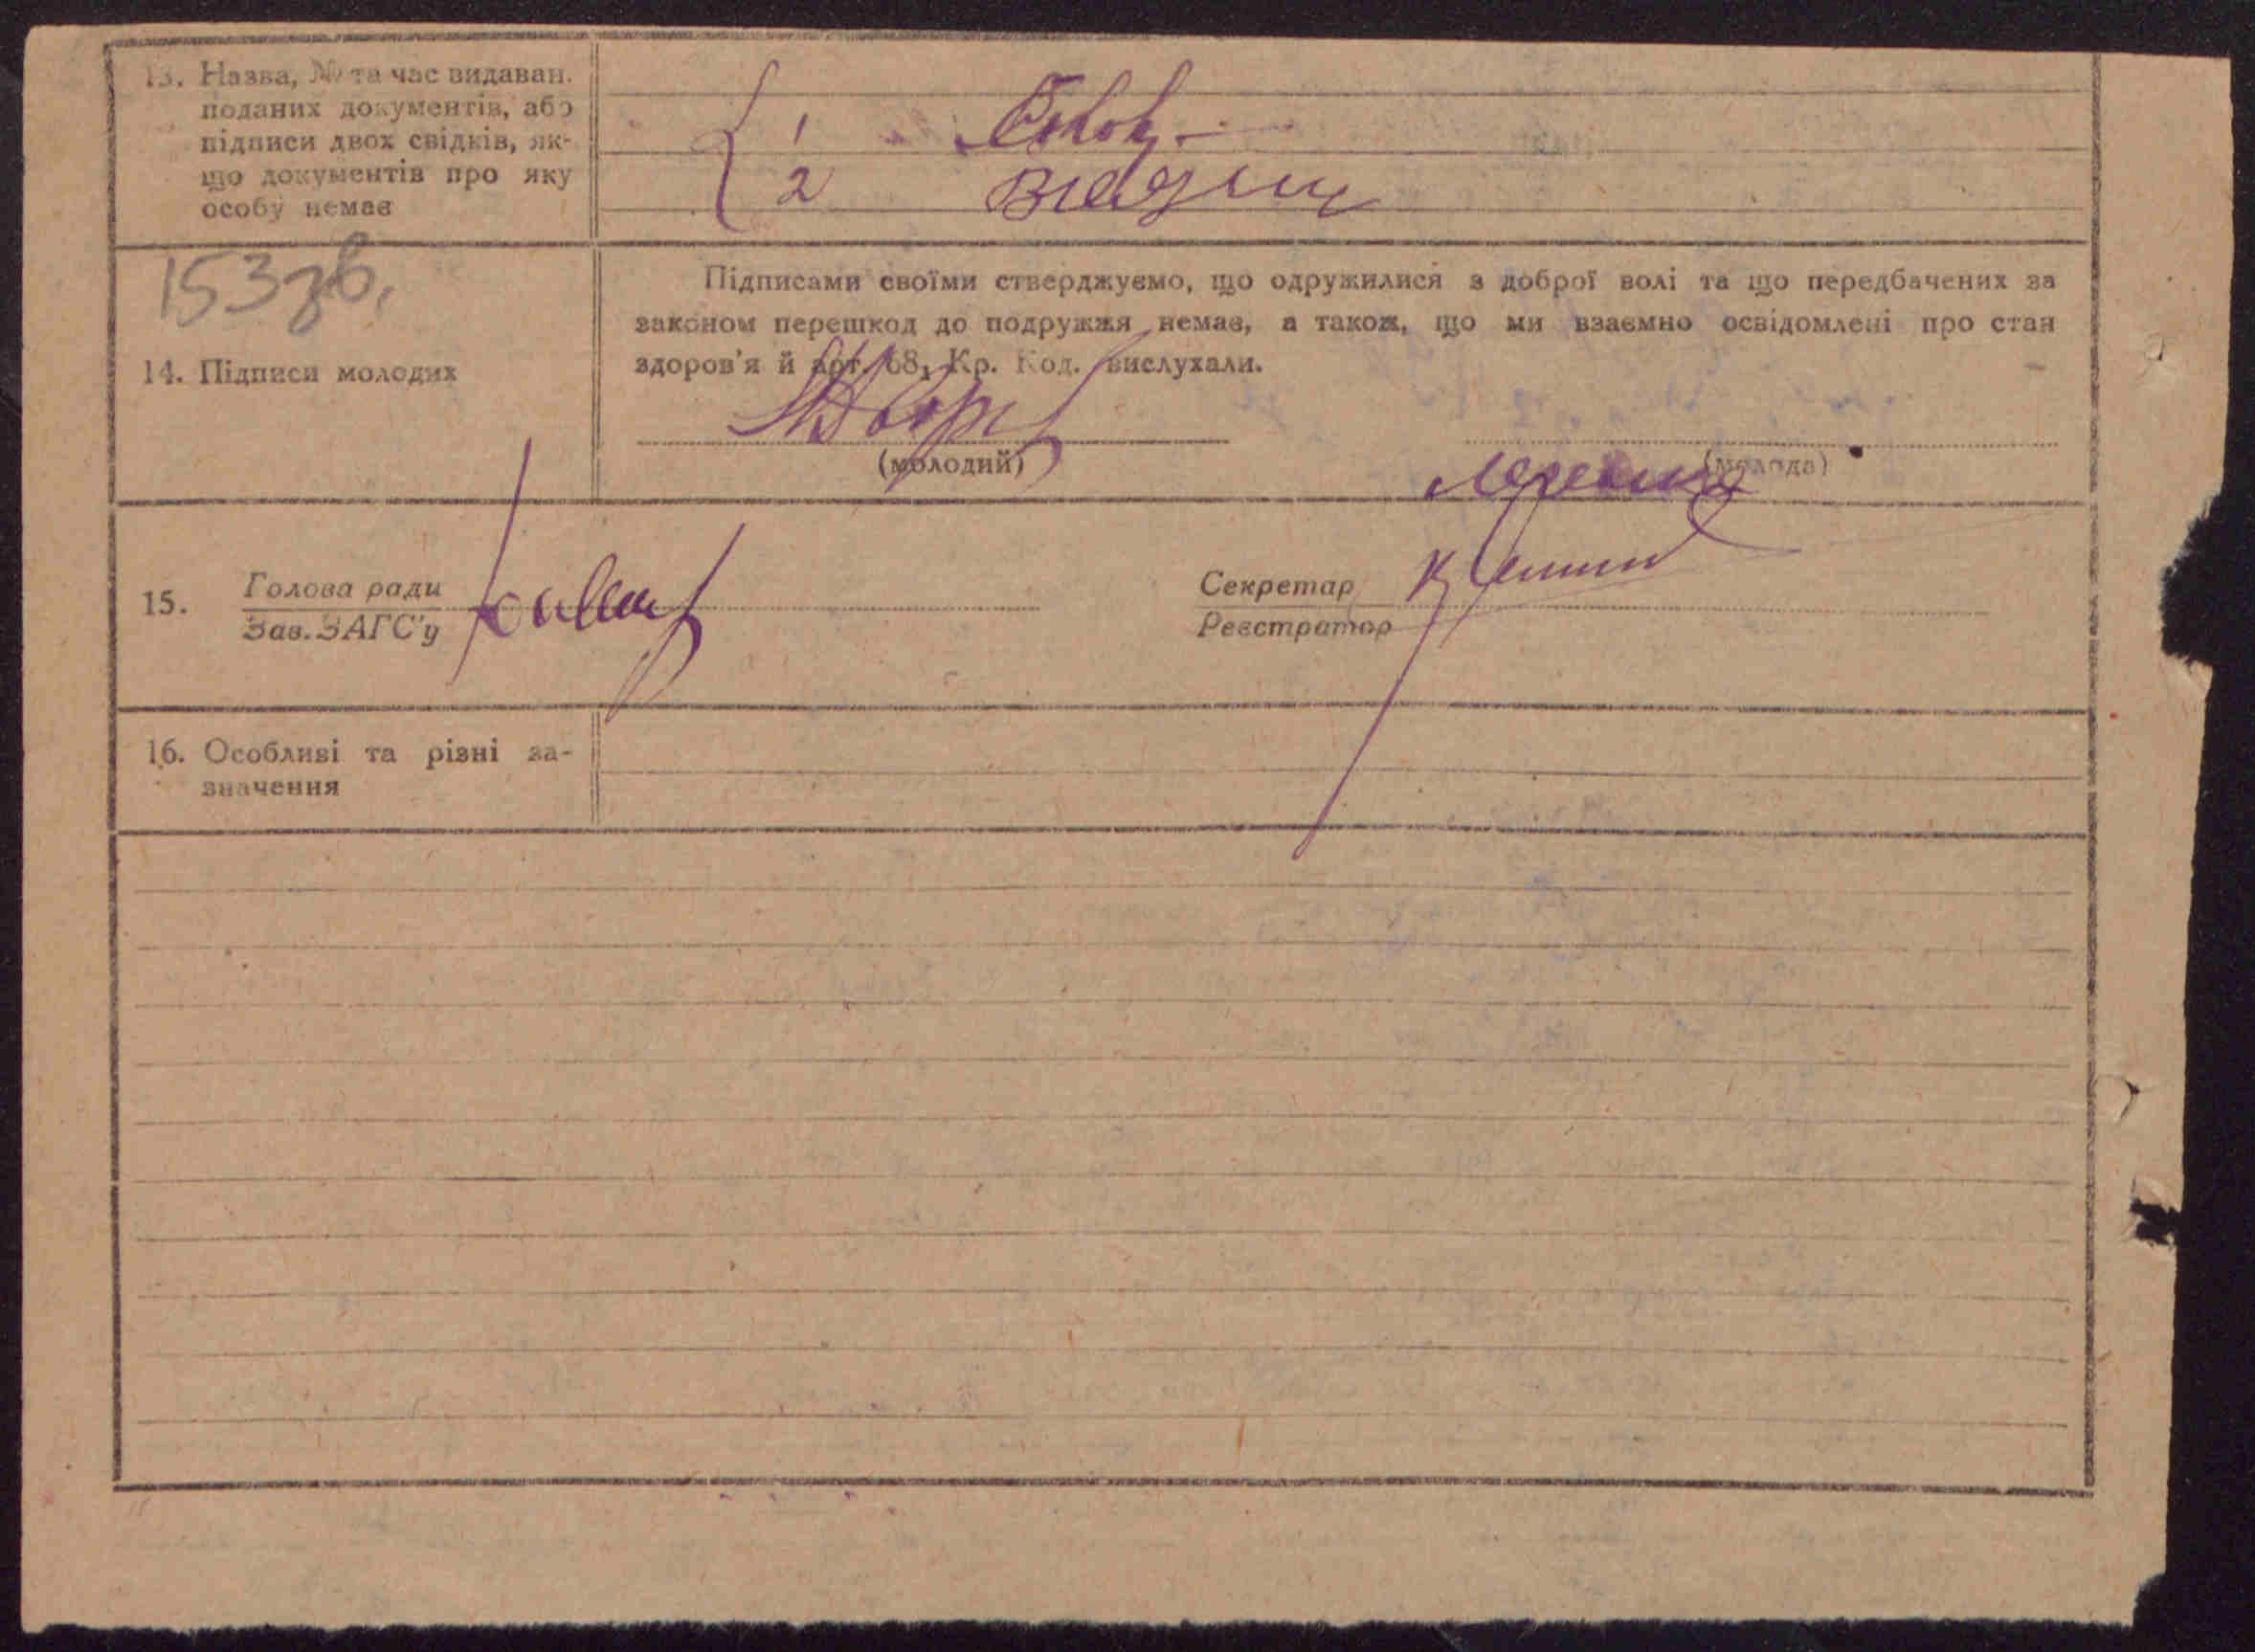 13. Назва, № та час видаван.
поданих документів, або
підписи двох свідків, як-
що документів про яку
особу немає
1
2
153 зв.
14. Підписи молодих
Підписами своїми стверджуємо, що одружилися з доброї волі та що передбачених за
законом перешкод до подружжя немає, а також, що ми взаємно освідомлені про стан
здоров'я й арт. 68, Кр. Код. вислухали.
(молодий)
(молода)
15. Голова ради
Зав. ЗАГС'у
Секретар
Реєстратор
16. Особливі та різні за-
значення